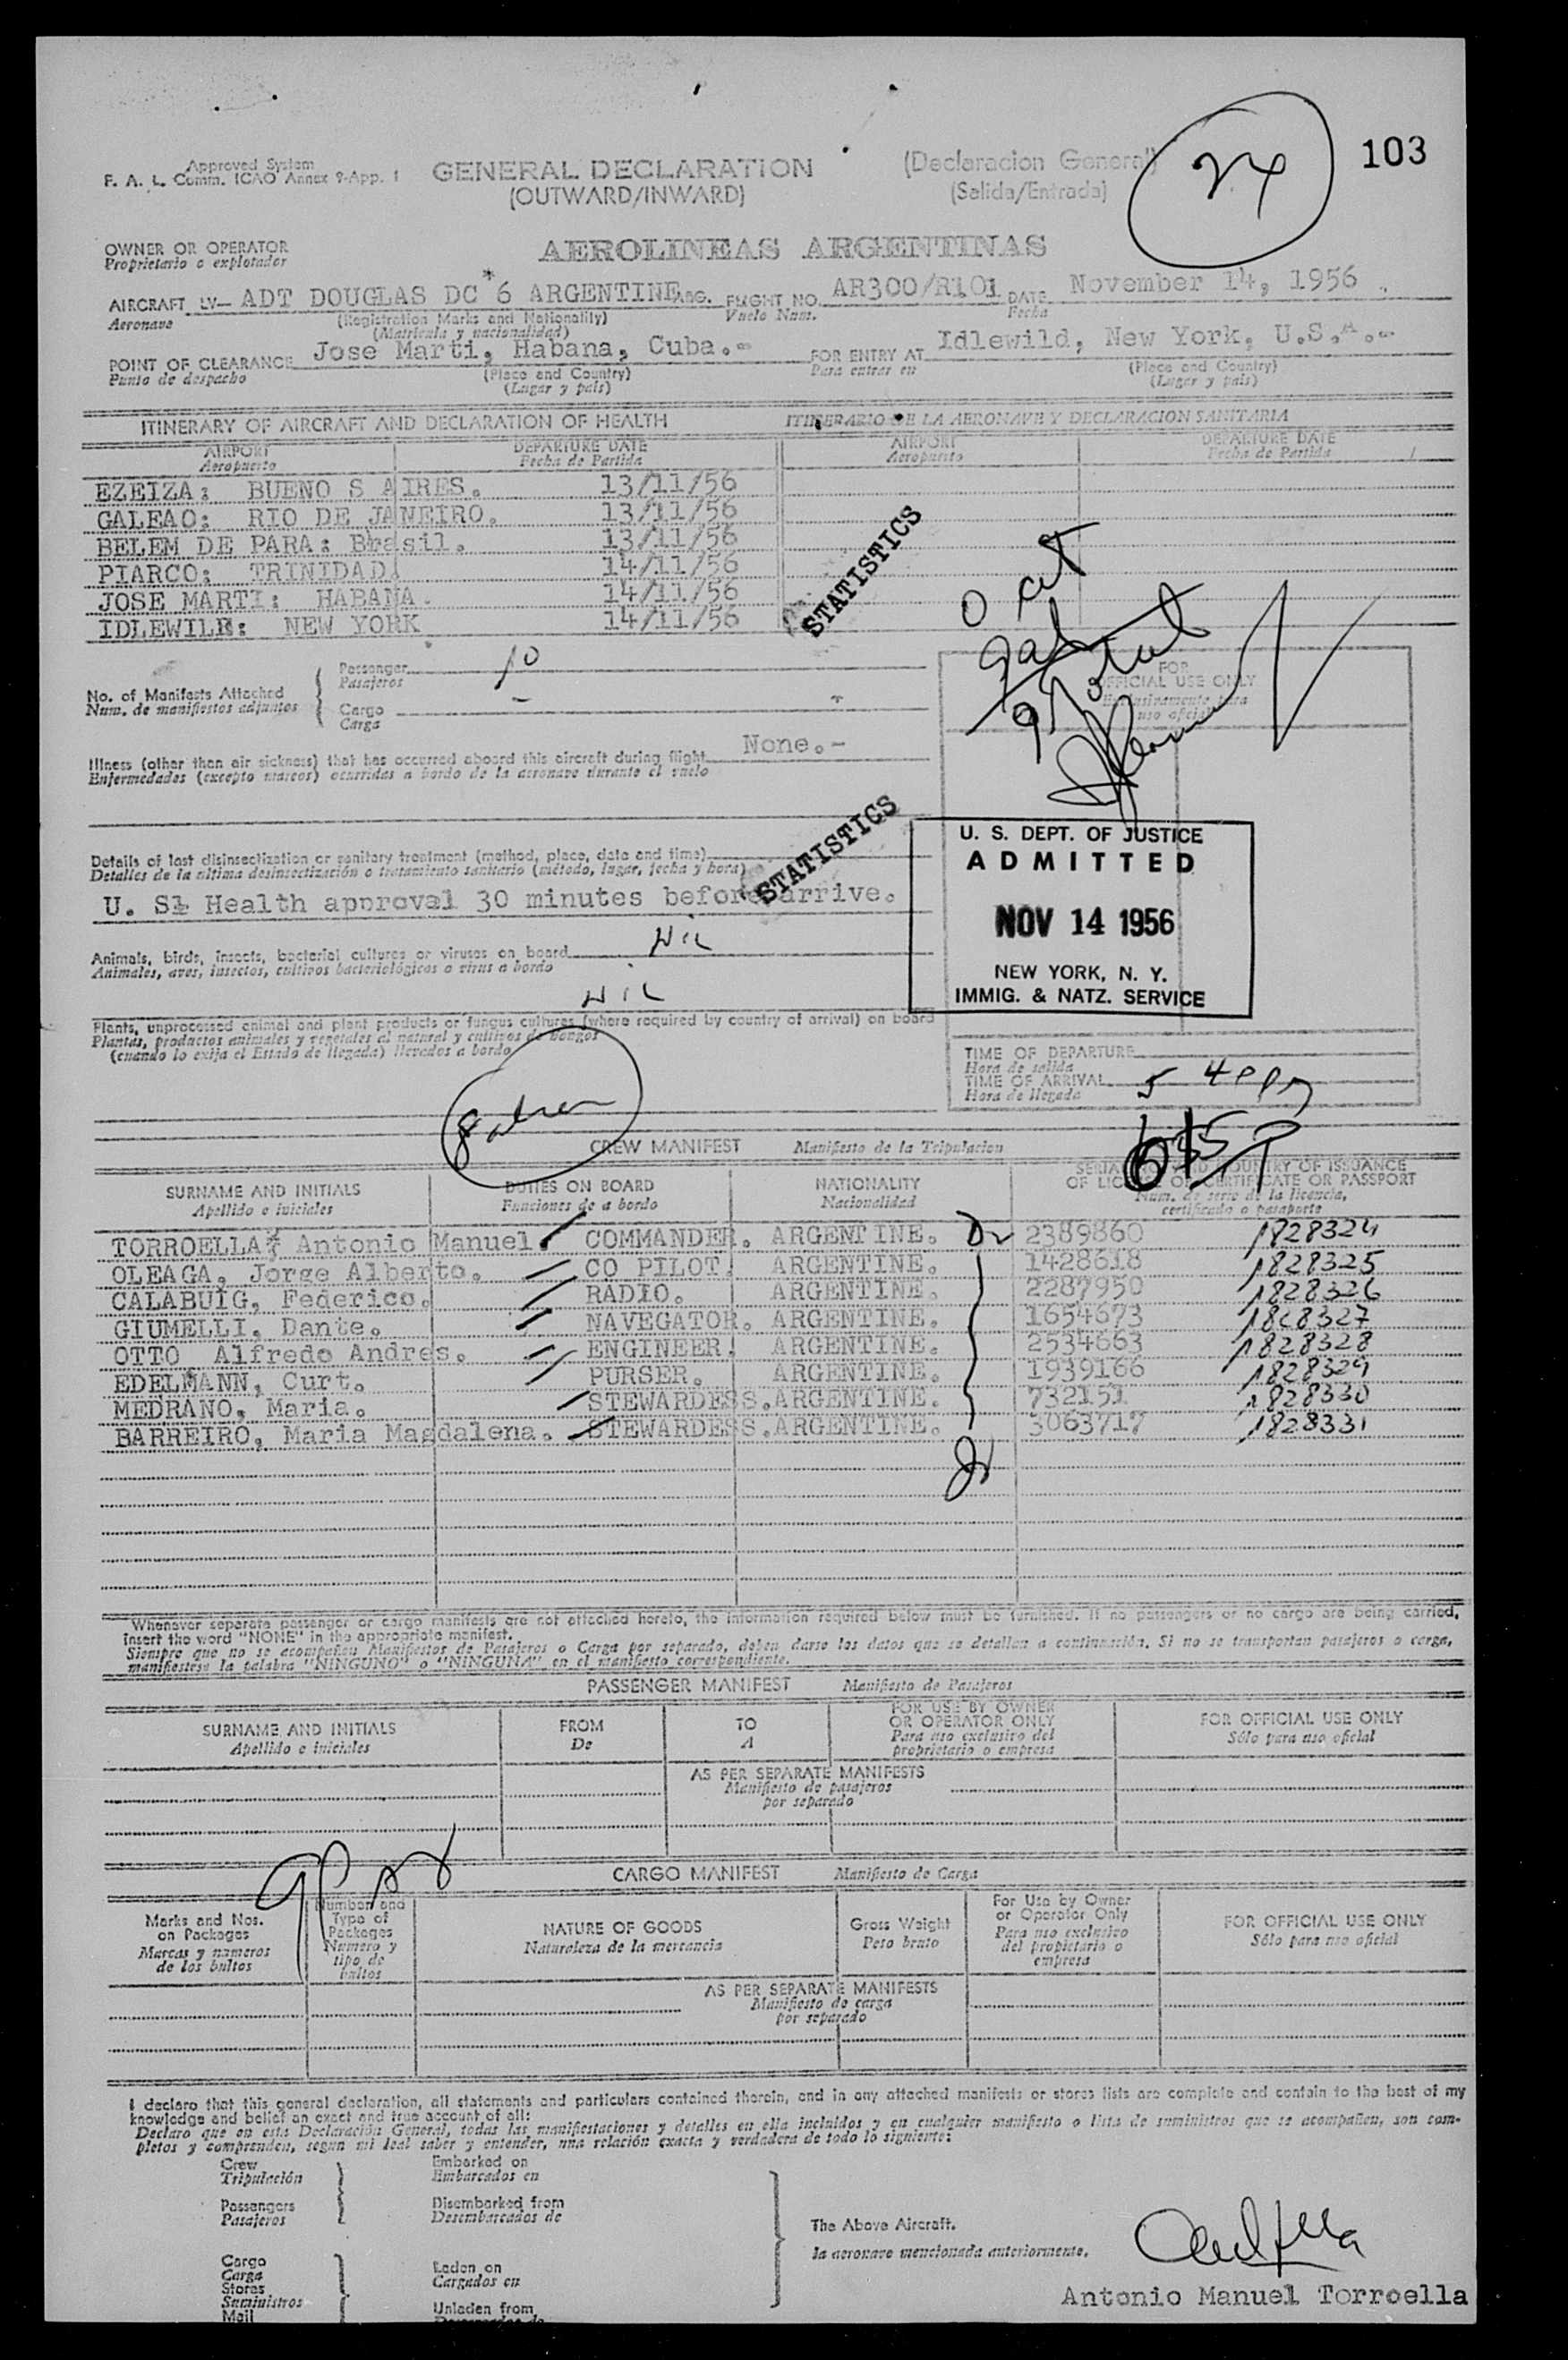 Approved System
F. A. L. Comm. ICAO Annex 9-App. 1
GENERAL DECLARATION
(OUTWARD/INWARD)
(Declaracion General)
(Salida/Entrada)
24
103
OWNER OR OPERATOR
Proprietario o explotador
AEROLINEAS ARGENTINAS
AIRCRAFT LV- ADT DOUGLAS DC*6 ARGENTINE FLIGHT NO. AR300/R101 DATE November 14, 1956.
Aeronave (Registration Marks and Nationality) Vuelo Num. Fecha
(Matricula y nacionalidad)
POINT OF CLEARANCE Jose Marti, Habana, Cuba.- FOR ENTRY AT Idlewild, New York, U.S.A.-
Punto de despacho (Place and Country) Para entrar en (Place and Country)
(Lugar y pais) (Lugar y pais)
ITINERARY OF AIRCRAFT AND DECLARATION OF HEALTH ITINERARIO DE LA AERONAVE Y DECLARACION SANITARIA
AIRPORT DEPARTURE DATE AIRPORT DEPARTURE DATE
Aeropuerto Fecha de Partida Aeropuerto Fecha de Partida
EZEIZA: BUENO S AIRES. 13/11/56
GALEAO: RIO DE JANEIRO. 13/11/56
BELEM DE PARA: Brasil. 13/11/56
PIARCO: TRINIDAD. 14/11/56
JOSE MARTI: HABANA. 14/11/56
IDLEWILE: NEW YORK 14/11/56
STATISTICS
No. of Manifests Attached
Num. de manifiestos adjuntos
Passenger 10
Pasajeros
Cargo -
Carga
FOR
OFFICIAL USE ONLY
Exclusivamente para
uso oficial
Illness (other than air sickness) that has occurred aboard this aircraft during flight None.-
Enfermedades (excepto mareos) ocurridas a bordo de la aeronave durante el vuelo
STATISTICS
Details of last disinsectization or sanitary treatment (method, place, date and time)
Detalles de la ultima desinsectización o tratamiento sanitario (método, lugar, fecha y hora)
U. S. Health approval 30 minutes before arrive.
U. S. DEPT. OF JUSTICE
ADMITTED
NOV 14 1956
NEW YORK, N. Y.
IMMIG. & NATZ. SERVICE
Animals, birds, insects, bacterial cultures or viruses on board Nil
Animales, aves, insectos, cultivos bacteriológicos o virus a bordo
Nil
Plants, unprocessed animal and plant products or fungus cultures (where required by country of arrival) on board
Plantas, productos animales y vegetales al natural y cultivos de hongos
(cuando lo exija el Estado de llegada) llevados a bordo
TIME OF DEPARTURE
Hora de salida
TIME OF ARRIVAL
Hora de llegada
CREW MANIFEST Manifiesto de la Tripulacion
SURNAME AND INITIALS DUTIES ON BOARD NATIONALITY SERIAL NO. AND COUNTRY OF ISSUANCE
OF LICENSE OR CERTIFICATE OR PASSPORT
Apellido e iniciales Funciones de a bordo Nacionalidad Num. de serie de la licencia,
certificado o pasaporte
TORROELLA, Antonio Manuel. COMMANDER. ARGENTINE. 2389860 1828324
OLEAGA, Jorge Alberto. CO PILOT. ARGENTINE. 1428618 1828325
CALABUIG, Federico. RADIO. ARGENTINE. 2287950 1828326
GIUMELLI, Dante. NAVEGATOR. ARGENTINE. 1654673 1828327
OTTO, Alfredo Andres. ENGINEER. ARGENTINE. 2534663 1828328
EDELMANN, Curt. PURSER. ARGENTINE. 1939166 1828329
MEDRANO, Maria. STEWARDESS. ARGENTINE. 732151 1828330
BARREIRO, Maria Magdalena. STEWARDESS. ARGENTINE. 3063717 1828331
Whenever separate passenger or cargo manifests are not attached hereto, the information required below must be furnished. If no passengers or no cargo are being carried,
insert the word "NONE" in the appropriate manifest.
Siempre que no se acompañen Manifiestos de Pasajeros o Carga por separado, deben darse los datos que se detallan a continuación. Si no se transportan pasajeros o carga,
manifiestese la palabra "NINGUNO" o "NINGUNA" en el manifiesto correspondiente.
PASSENGER MANIFEST Manifiesto de Pasajeros
SURNAME AND INITIALS FROM TO FOR USE BY OWNER
OR OPERATOR ONLY FOR OFFICIAL USE ONLY
Apellido e iniciales De A Para uso exclusivo del
proprietario o empresa Sólo para uso oficial
AS PER SEPARATE MANIFESTS
Manifiesto de pasajeros
por separado
CARGO MANIFEST Manifiesto de Carga
Marks and Nos.
on Packages
Marcas y numeros
de los bultos
Number and
Type of
Packages
Numero y
tipo de
bultos
NATURE OF GOODS
Naturaleza de la mercancia
Gross Weight
Peso bruto
For Use by Owner
or Operator Only
Para uso exclusivo
del propietario o
empresa
FOR OFFICIAL USE ONLY
Sólo para uso oficial
AS PER SEPARATE MANIFESTS
Manifiesto de carga
por separado
I declare that this general declaration, all statements and particulars contained therein, and in any attached manifests or stores lists are complete and contain to the best of my
knowledge and belief an exact and true account of all:
Declaro que en esta Declaración General, todas las manifiestaciones y detalles en ella incluidos y en cualquier manifiesto o lista de suministros que se acompañen, son com-
pletos y comprenden, segun mi leal saber y entender, una relación exacta y verdadera de todo lo siguiente:
Crew
Tripulación
Embarked on
Embarcados en
Passengers
Pasajeros
Disembarked from
Desembarcados de
The Above Aircraft.
la aeronave mencionada anteriormente.
Cargo
Carga
Stores
Suministros
Mail
Laden on
Cargados en
Unladen from
Antonio Manuel Torroella